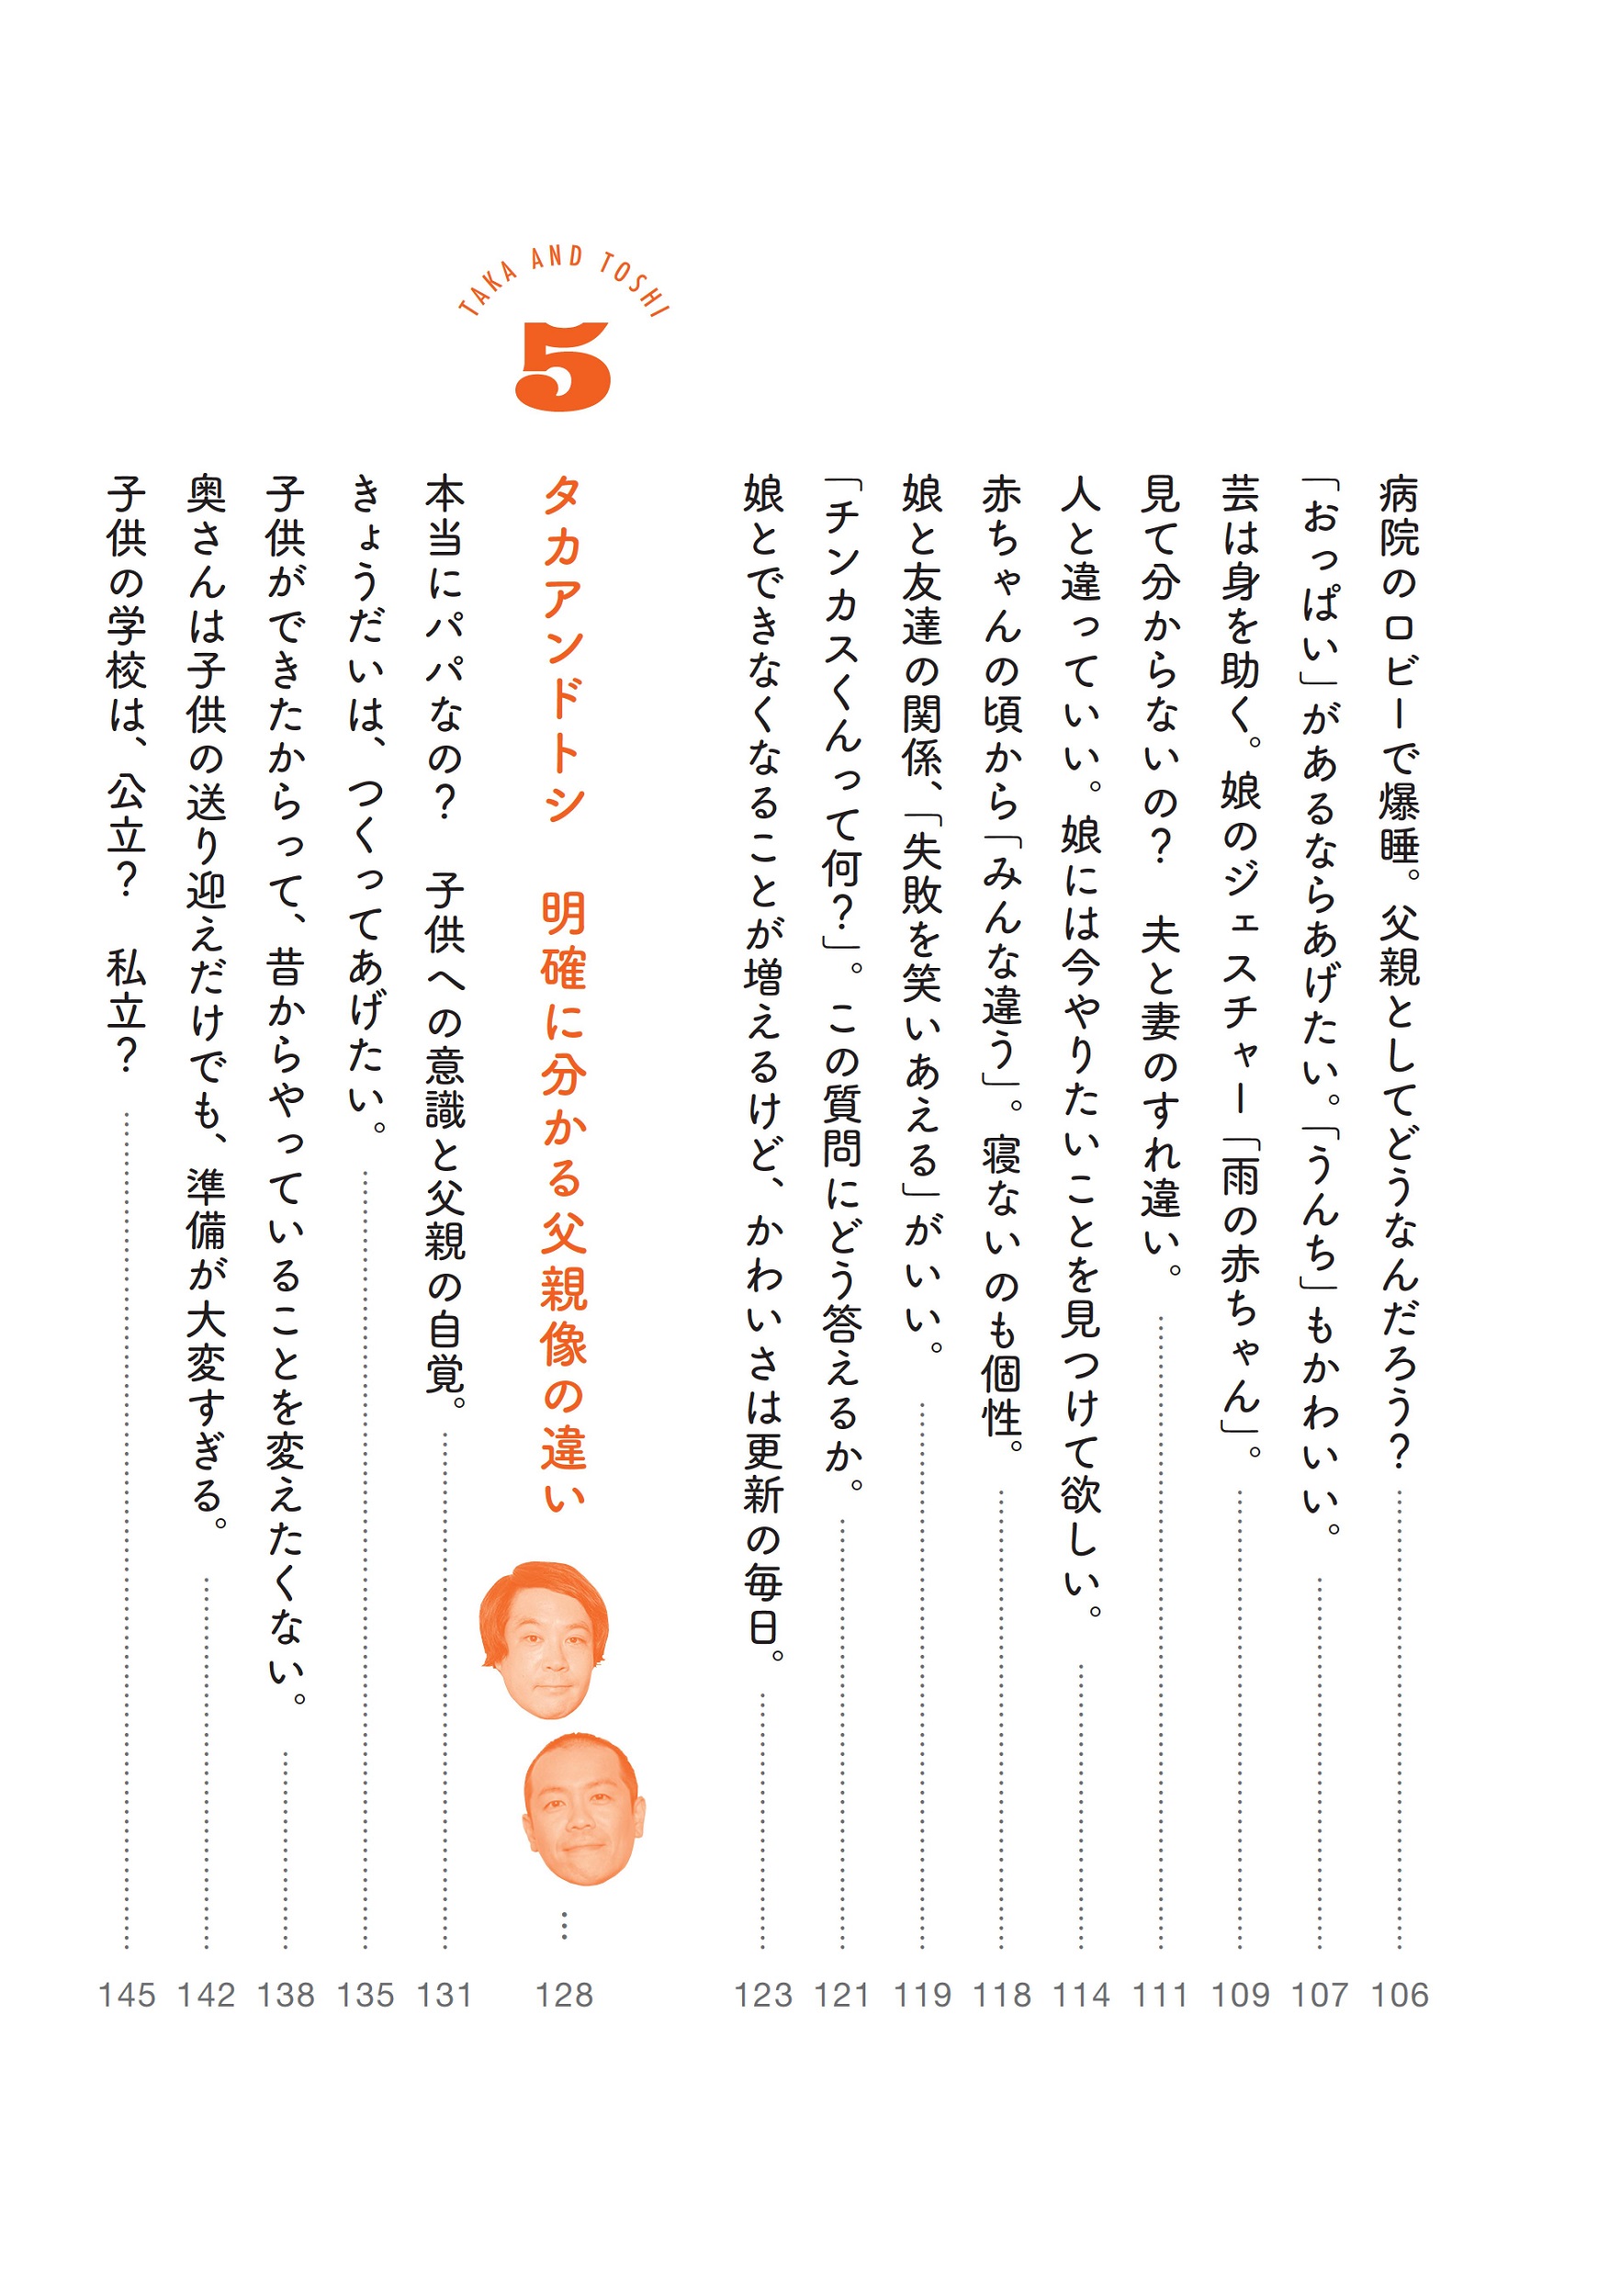 病院のロビーで爆睡。父親としてどうなんだろう？ 106
「おっぱい」があるならあげたい。「うんち」もかわいい。 107
芸は身を助く。娘のジェスチャー「雨の赤ちゃん」。 109
見て分からないの？　夫と妻のすれ違い。 111
人と違っていい。娘には今やりたいことを見つけて欲しい。 114
赤ちゃんの頃から「みんな違う」。寝ないのも個性。 118
娘と友達の関係、「失敗を笑いあえる」がいい。 119
「チンカスくんって何？」。この質問にどう答えるか。 121
娘とできなくなることが増えるけど、かわいさは更新の毎日。 123
TAKA AND TOSHI
5
タカアンドトシ　明確に分かる父親像の違い … 128
本当にパパなの？　子供への意識と父親の自覚。 131
きょうだいは、つくってあげたい。 135
子供ができたからって、昔からやっていることを変えたくない。 138
奥さんは子供の送り迎えだけでも、準備が大変すぎる。 142
子供の学校は、公立？　私立？ 145